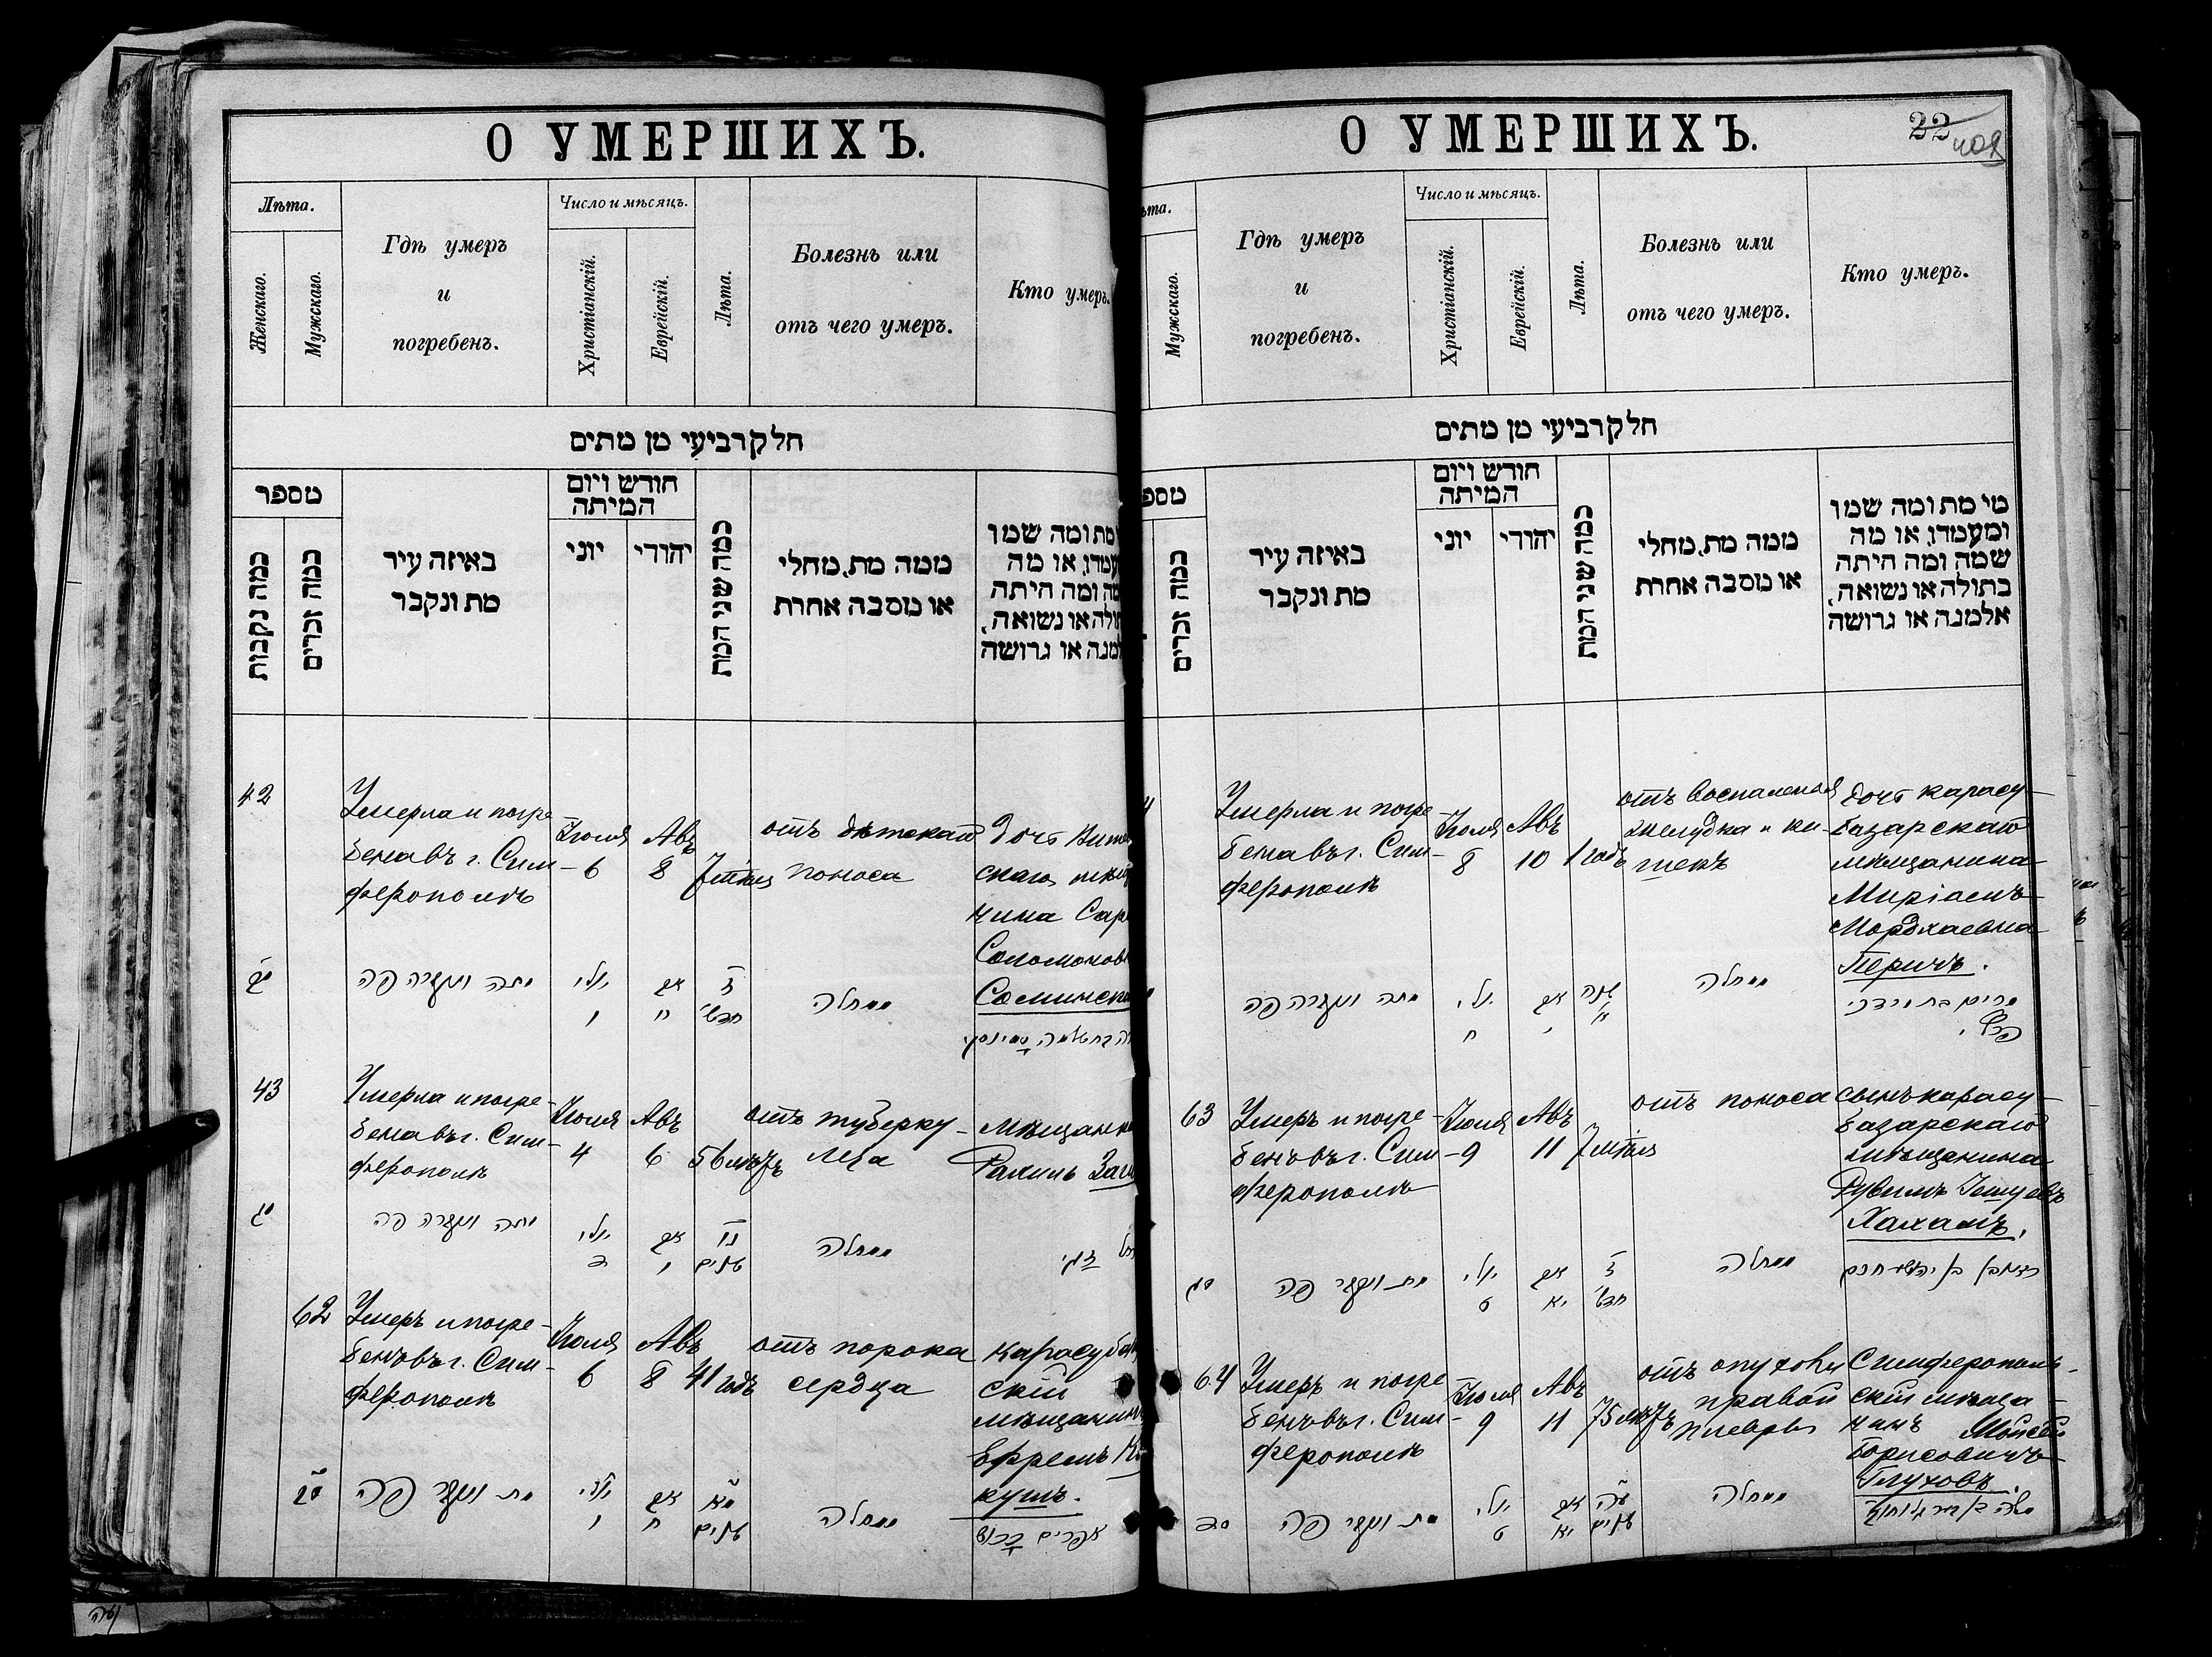 О УМЕРШИХЪ.
Лѣта.
Женскаго.
Мужскаго.
Гдѣ умеръ
и
погребенъ.
Число и мѣсяцъ.
Христіанскій.
Еврейскій.
Лѣта.
Болезнь или
отъ чего умеръ.
Кто умеръ.
חלק רביעי מן מתים
מספר
כמה נקבות
כמה זכרים
באיזה עיר
מת ונקבר
חודש ויום
המיתה
יוני
יהודי
כמה שני המת
ממה מת, מחלי
או מסבה אחרת
מת ומה שמו
או מה
ומה היתה
או נשואה,
או גרושה
42
Умерла и погре
бена въ г. Сим-
ферополѣ
Іюля
6
Авъ
8
7 мѣсяц
отъ дѣтскаго
поноса
дочь
Соломонов
מתה ונקברה פה
יולי
ו
אב
ח
ז
חדש׳
מחלה
43
Умерла и погре-
бена въ г. Сим-
ферополѣ
Іюля
4
Авъ
6
56 лѣтъ
отъ туберку-
леза
мѣщанк
Рахиль
מתה ונקברה פה
יולי
ד
אב
ו
נו
שנים
מחלה
62
Умеръ и погре-
бенъ въ г. Сим-
ферополѣ
Іюля
6
Авъ
8
41 годъ
отъ порока
сердца
карасубаз
скій
мѣщанинъ
Ефремъ
кушъ.
מת ונקבר פה
יולי
ו
אב
ח
מא
שנים
מחלה
אפרים
О УМЕРШИХЪ.
22
ѣта.
Мужскаго.
Гдѣ умеръ
и
погребенъ.
Число и мѣсяцъ.
Христіанскій.
Еврейскій.
Лѣта.
Болезнь или
отъ чего умеръ.
Кто умеръ.
חלק רביעי מן מתים
מספ
כמה זכרים
באיזה עיר
מת ונקבר
חודש ויום
המיתה
יוני
יהודי
כמה שני המת
ממה מת, מחלי
או מסבה אחרת
מי מת ומה שמו
ומעמדו, או מה
שמה ומה היתה
בתולה או נשואה,
אלמנה או גרושה
Умерла и погре-
бена въ г. Сим-
ферополѣ
Іюля
8
Авъ
10
1 годъ
отъ воспаленія
желудка и ки-
шекъ
дочь карасу-
базарскаго
мѣщанина
Миріамъ
Мордхаевна
Перичъ.
מתה ונקברה פה
יולי
ח
אב
י
שנה
מחלה
מרים בת מרדכי
63
Умеръ и погре-
бенъ въ г. Сим-
ферополѣ
Іюля
9
Авъ
11
7 мѣсяц
отъ поноса
сынъ карасу-
базарскаго
мѣщанина
Рувимъ Іешуевъ
Хахамъ.
סג
מת ונקבר פה
יולי
ט
אב
יא
ז
חדש׳
מחלה
64
Умеръ и погре
бенъ въ г. Сим-
ферополѣ
Іюля
9
Авъ
11
75 лѣтъ
отъ опухоли
правой
плевры
Симферополь-
скій мѣща-
нинъ Мойсей
Борисовичъ
Глуховъ.
סד
מת ונקבר פה
יולי
ט
אב
יא
עה
שנים
מחלה